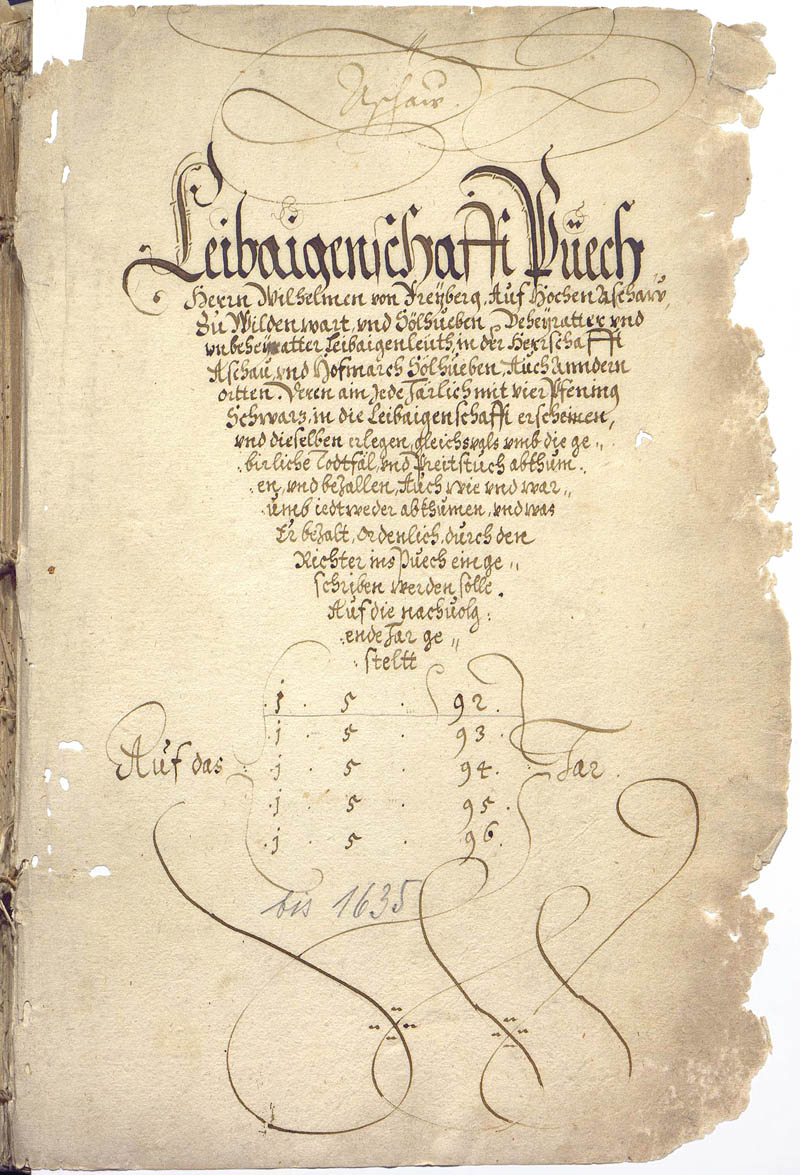 Aschaw.
Leibaigenschafft Püech
Herrn Wilhelmen von Freyberg, Auf Hochen Aschaw,
Zu Wildenwart, und Sölhueben, Beheyratter und
unbeheyratter Leibaigenleuth, in der Herrschafft
Aschau, und Hofmarch Sölhueben, Auch Anndern
ortten. Deren ain Jede Järlich mit vier Pfening
Schwarz, in die Leibaigenschafft erscheinen,
und dieselben erlegen, gleichsvals umb die ge„
birliche Todtfäl, und Preitstuch abkhum„
en, und bezallen, Auch wie und war„
umb iedtweder abkhumen, und was
Er bezalt, ordenlich, durch den
Richter ins Puech einge„
schriben werden solle.
Auf die nachuolg„
ende Jar ge„
steltt
1 . 5 . 92 .
1 . 5 . 93 .
Auf das 1 . 5 . 94 . Jar .
1 . 5 . 95 .
1 . 5 . 96 .
bis 1635